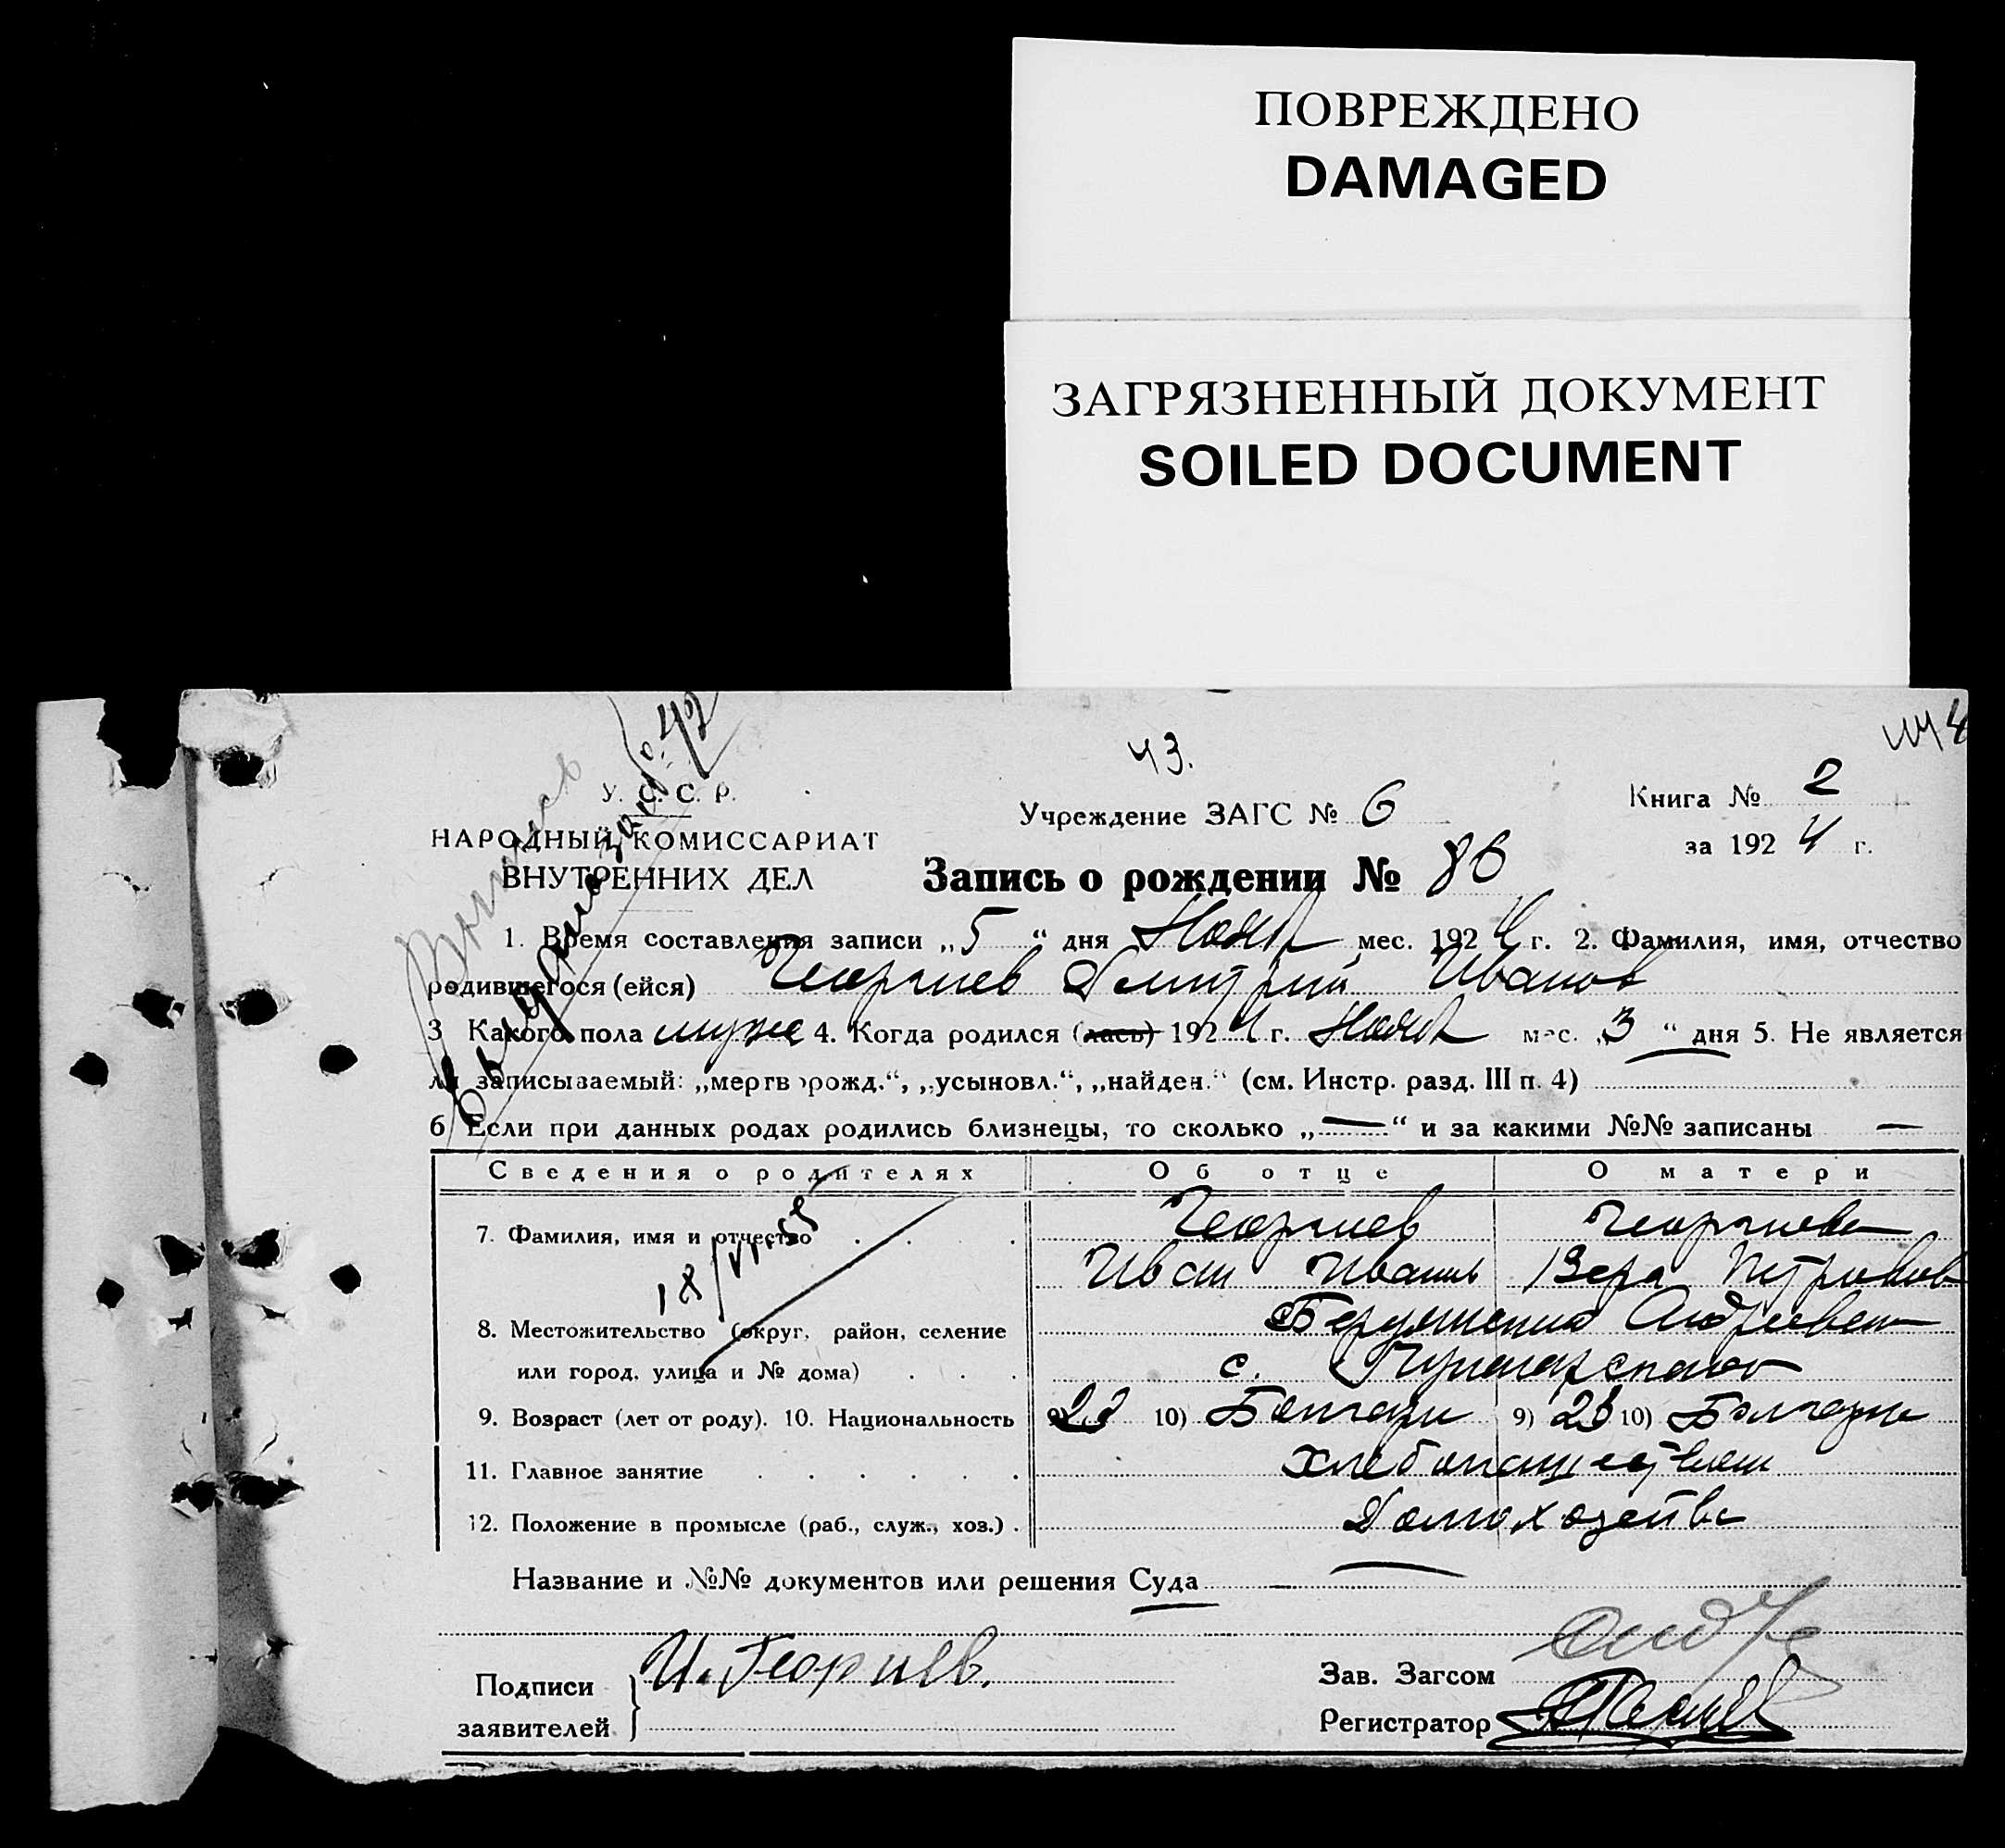 ПОВРЕЖДЕНО
DAMAGED
ЗАГРЯЗНЕННЫЙ ДОКУМЕНТ
SOILED DOCUMENT
43.
У. С. С. Р.
НАРОДНЫЙ КОМИССАРИАТ
ВНУТРЕННИХ ДЕЛ
Учреждение ЗАГС № 6
Книга № 2
за 1924 г.
Запись о рождении № 86
1. Время составления записи „5“ дня Ноя мес. 1924 г. 2. Фамилия, имя, отчество
родившегося (ейся) Георгиев Дмитрий Иванов
3 Какого пола муже 4. Когда родился (лась) 1924 г. Ноя мес. „3“ дня 5. Не является
ли записываемый: „мертворожд.“, „усыновл.“, „найден.“ (см. Инстр. разд. III п. 4)
6 Если при данных родах родились близнецы, то сколько „—“ и за какими №№ записаны —
Сведения о родителях Об отце О матери
7. Фамилия, имя и отчество Георгиев Георгиева
Иван Иванов Вера Петровов
8. Местожительство (округ, район, селение Андреевск
или город, улица и № дома) с.
9. Возраст (лет от роду). 10. Национальность 9) 23 10) Болгари 9) 23 10) Болгарке
11. Главное занятие хлебопашеством
12. Положение в промысле (раб., служ., хоз.) Домохозяйве
Название и №№ документов или решения Суда —
Подписи
заявителей
И. Георгиев.
Зав. Загсом
Регистратор
18/VI-55